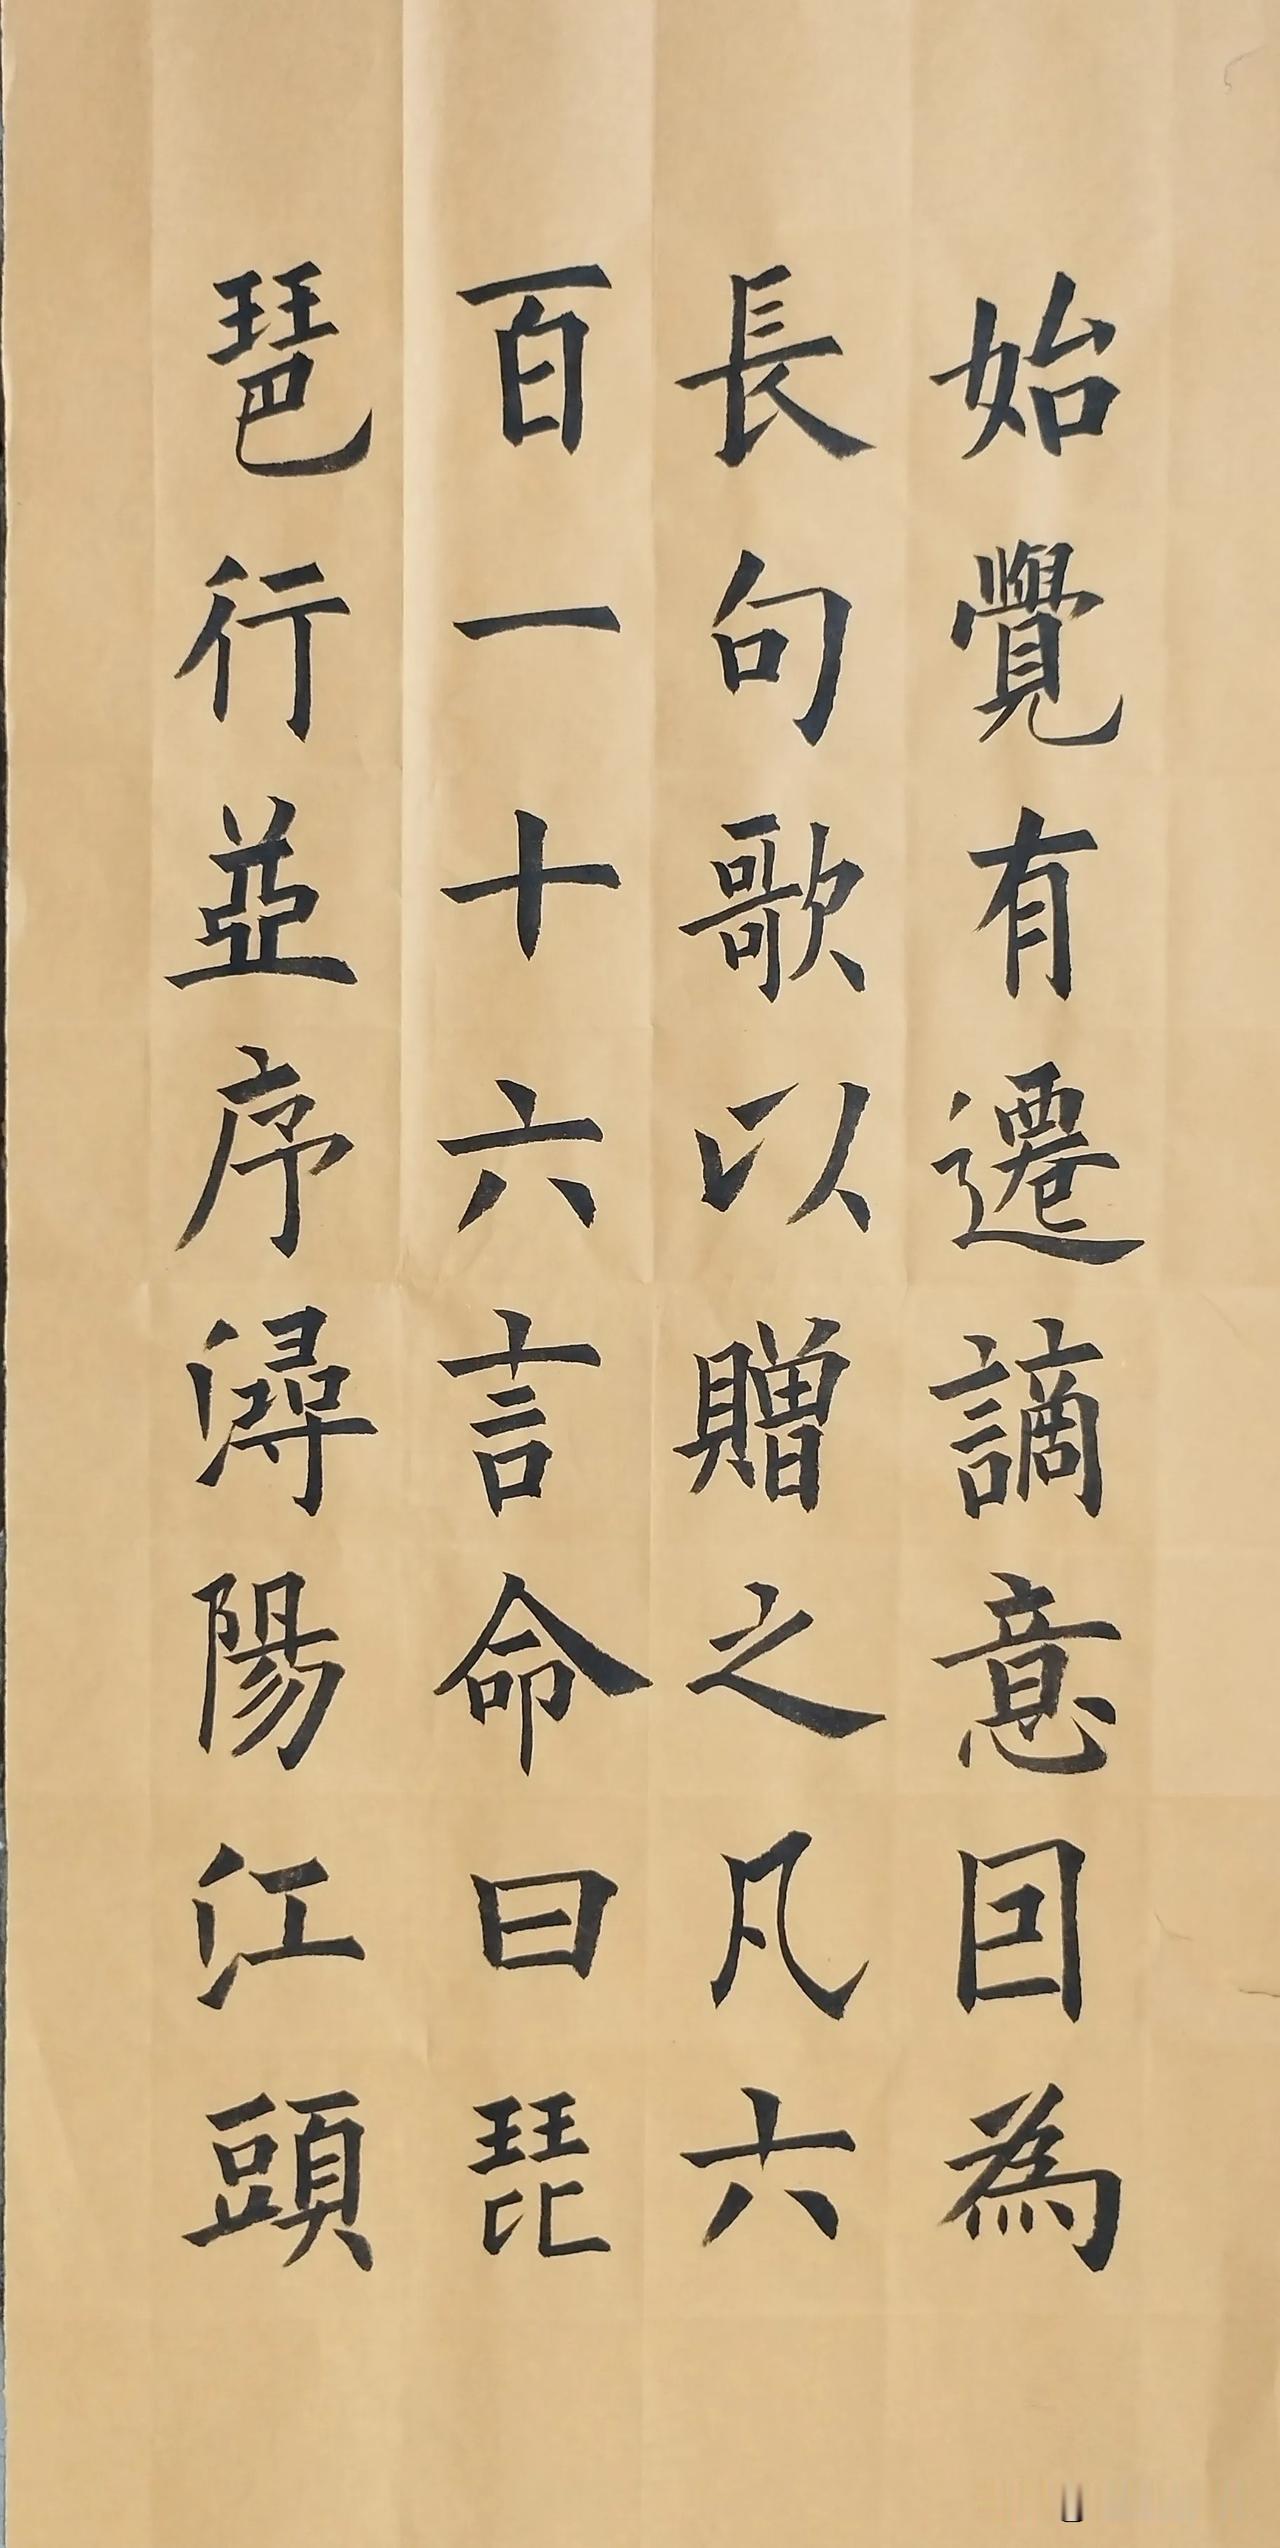 始覺有遷謫意囙為
長句歌以贈之凡六
百一十六言命曰琵
琶行並序潯陽江頭